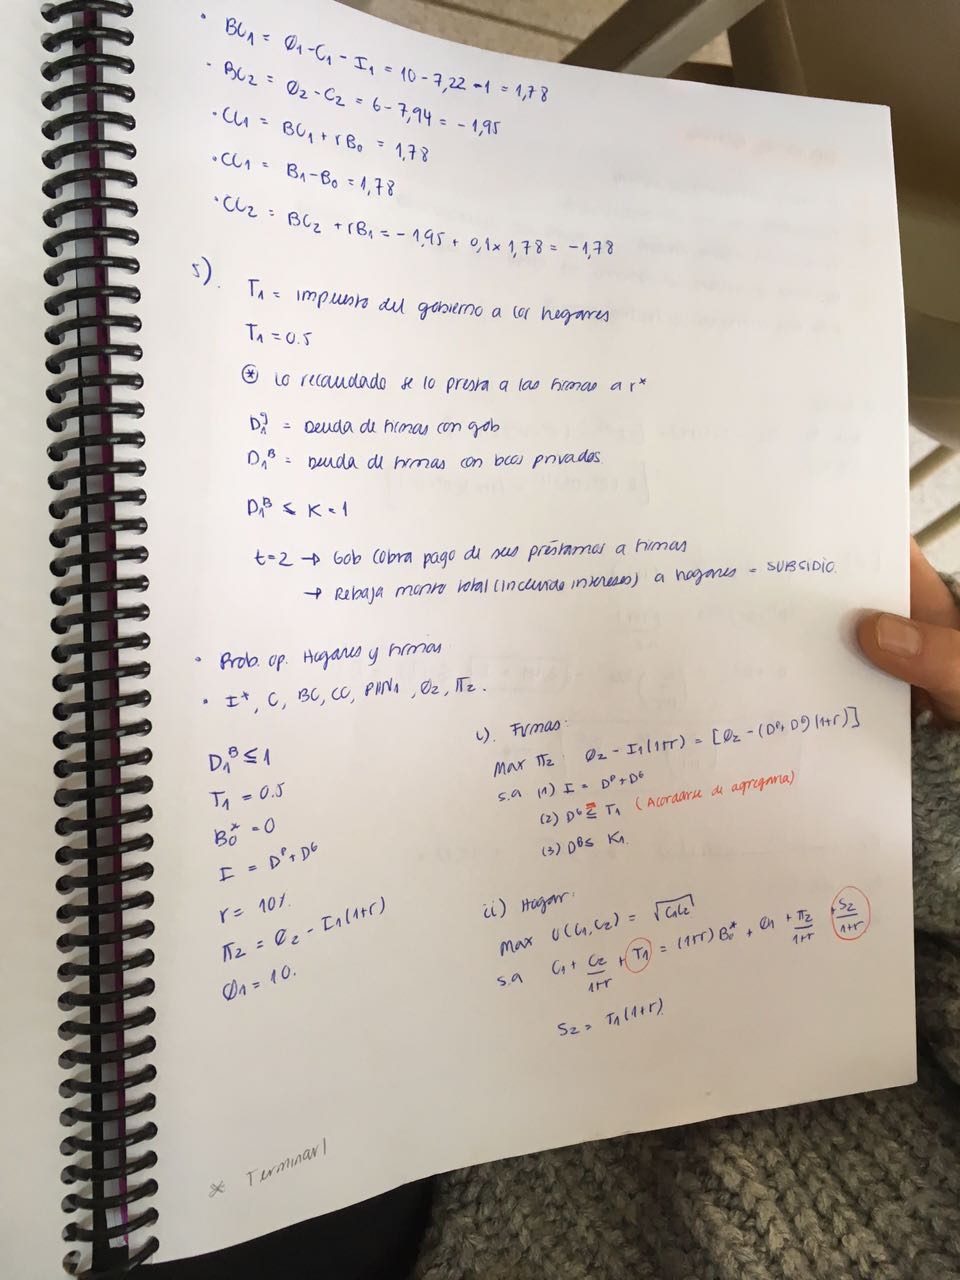 • BC1 = Ø1 - C1 - I1 = 10 - 7,22 - 1 = 1,78
• BC2 = Ø2 - C2 = 6 - 7,94 = -1,95
• CC1 = BC1 + rB0 = 1,78
• CC1 = B1 - B0 = 1,78
• CC2 = BC2 + rB1 = -1,95 + 0,1 x 1,78 = -1,78
5).
T1 = impuesto del gobierno a los hogares
T1 = 0.5
⊛ lo recaudado se lo presta a las firmas a r*
D1^g = Deuda de firmas con gob
D1^B = Deuda de firmas con bcos privados.
D1^B ≤ K = 1
t=2 → Gob cobra pago de sus préstamos a firmas
→ Rebaja monto total (incluido intereses) a hogares = SUBSIDIO.
• Prob. op. Hogares y firmas
• I*, C, BC, CC, PIIN1, Ø2, π2.
D1^B ≤ 1
T1 = 0.5
B0* = 0
I = D^P + D^G
r = 10%.
π2 = Ø2 - I1(1+r)
Ø1 = 10.
i). Firmas:
Max π2: Ø2 - I1(1+r) = [Ø2 - (D^P + D^g)(1+r)]
s.a (1) I = D^P + D^G
(2) D^G ≤ T1 (Acordarse de agregarla)
(3) D^B ≤ K1.
ii) Hogar:
Max U(C1,C2) = √C1C2
s.a C1 + C2/1+r + T1 = (1+r) B0* + Ø1 + π2/1+r + S2/1+r
S2 = T1(1+r)
* Terminar!